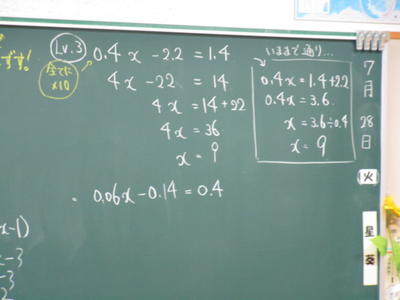 Lv.3
0.4x - 2.2 = 1.4
全てに
×10
4x - 22 = 14
4x = 14 + 22
4x = 36
x = 9
0.06x - 0.14 = 0.4
いままで通り...
0.4x = 1.4 + 2.2
0.4x = 3.6
x = 3.6 ÷ 0.4
x = 9
7
月
28
日
火
星
葵
x-1)
x-3
-3